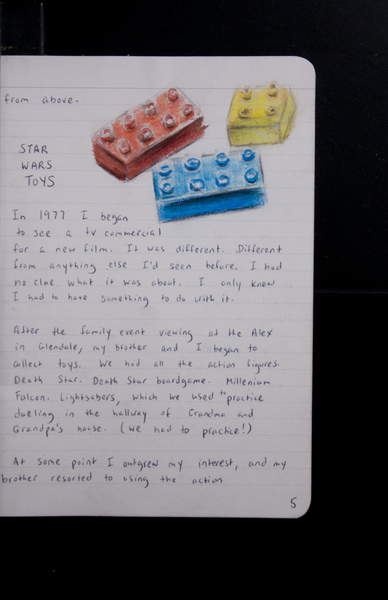 from above.
STAR
WARS
TOYS
In 1977 I began
to see a tv commercial
for a new film. It was different. Different
from anything else I'd seen before. I had
no clue what it was about. I only knew
I had to have something to do with it.
After the family event viewing at the Alex
in Glendale, my brother and I began to
collect toys. We had all the action figures.
Death Star. Death Star boardgame. Millenium
Falcon. Lightsabers, which we used to practice
dueling in the hallway of Grandma and
Grandpa's house. (We had to practice!)
At some point I outgrew my interest, and my
brother resorted to using the action
5